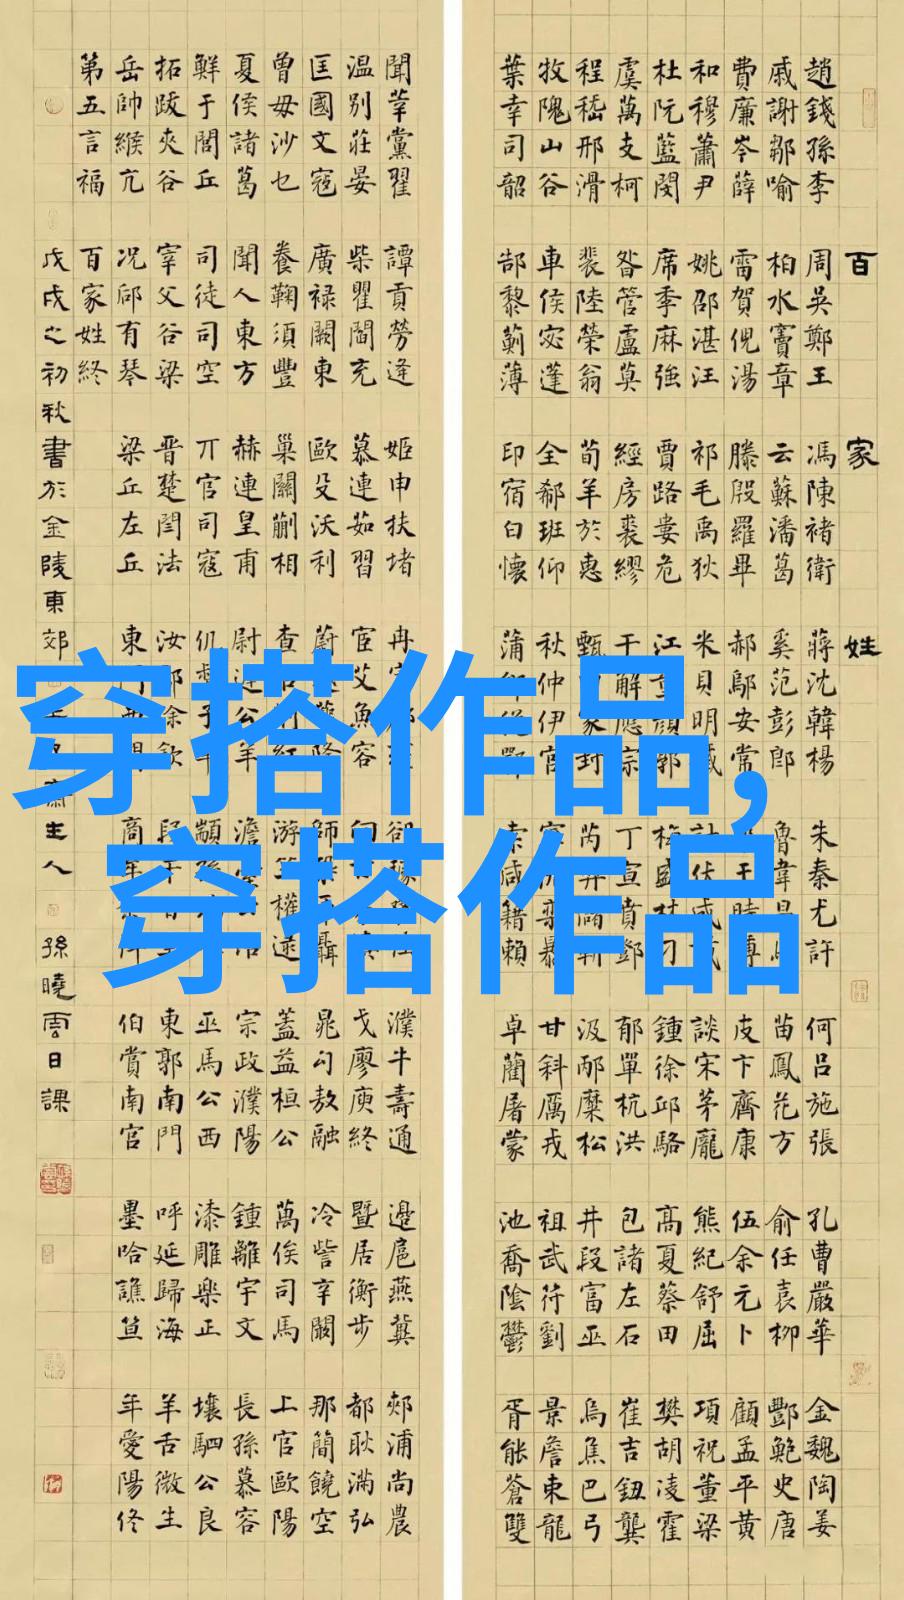 百家姓
趙錢孫李 周吳鄭王 馮陳褚衛 蔣沈韓楊 朱秦尤許 何呂施張 孔曹嚴華 金魏陶姜
戚謝鄒喻 柏水竇章 云蘇潘葛 奚范彭郎 魯韋昌馬 苗鳳花方 俞任袁柳 酆鮑史唐
費廉岑薛 雷賀倪湯 滕殷羅畢 郝鄔安常 于時傅 皮卞齊康 伍余元卜 顧孟平黃
和穆蕭尹 姚邵湛汪 祁毛禹狄 米貝明臧 計伏成戴 談宋茅龐 熊紀舒屈 項祝董梁
杜阮藍閔 席季麻強 賈路婁危 江童顏郭 梅盛林刁 鍾徐邱駱 高夏蔡田 樊胡凌霍
虞萬支柯 昝管盧莫 經房裘繆 干解應宗 丁宣賁鄧 郁單杭洪 包諸左石 崔吉鈕龔
程嵇邢滑 裴陸榮翁 荀羊於惠 甄家封 芮羿儲靳 汲邴糜松 井段富巫 烏焦巴弓
牧隗山谷 車侯宓蓬 全郗班仰 秋仲伊宮 寧仇欒暴 甘斜厲戎 祖武符劉 景詹束龍
葉幸司韶 郜黎薊薄 印宿白懷 蒲邰從鄂 索咸籍賴 卓藺屠蒙 池喬陰鬱 胥能蒼雙
聞莘黨翟 譚貢勞逄 姬申扶堵 冉宰 郤璩桑桂 濮牛壽通 邊扈燕冀 郟浦尚農
温別莊晏 柴瞿閻充 慕連茹習 宦艾魚容 向慎 戈廖庾終 暨居衡步 都耿滿弘
匡國文寇 廣祿闕東 歐殳沃利 蔚隆 師鞏聶 晁勾敖融 冷訾辛闞 那簡饒空
曾毋沙乜 養鞠須豐 巢關蒯相 查紅 游竺權逯 蓋益桓公 萬俟司馬 上官歐陽
夏侯諸葛 聞人東方 赫連皇甫 尉遲公羊 澹臺公冶 宗政濮陽 鍾離宇文 長孫慕容
鮮于閭丘 司徒司空 丌官司寇 仉督子車 顓孫 巫馬公西 漆雕樂正 壤駟公良
拓跋夾谷 宰父谷梁 晋楚閆法 汝鄢涂欽 段干百里 東郭南門 呼延歸海 羊舌微生
岳帥緱亢 況郈有琴 梁丘左丘 東門西門 商牟 伯賞南宮 墨哈譙笪 年愛陽佟
第五言福 百家姓終
戊戌之初秋書於金陵東郊 齋主人 孫曉雲日課
穿搭作品,
穿搭作品